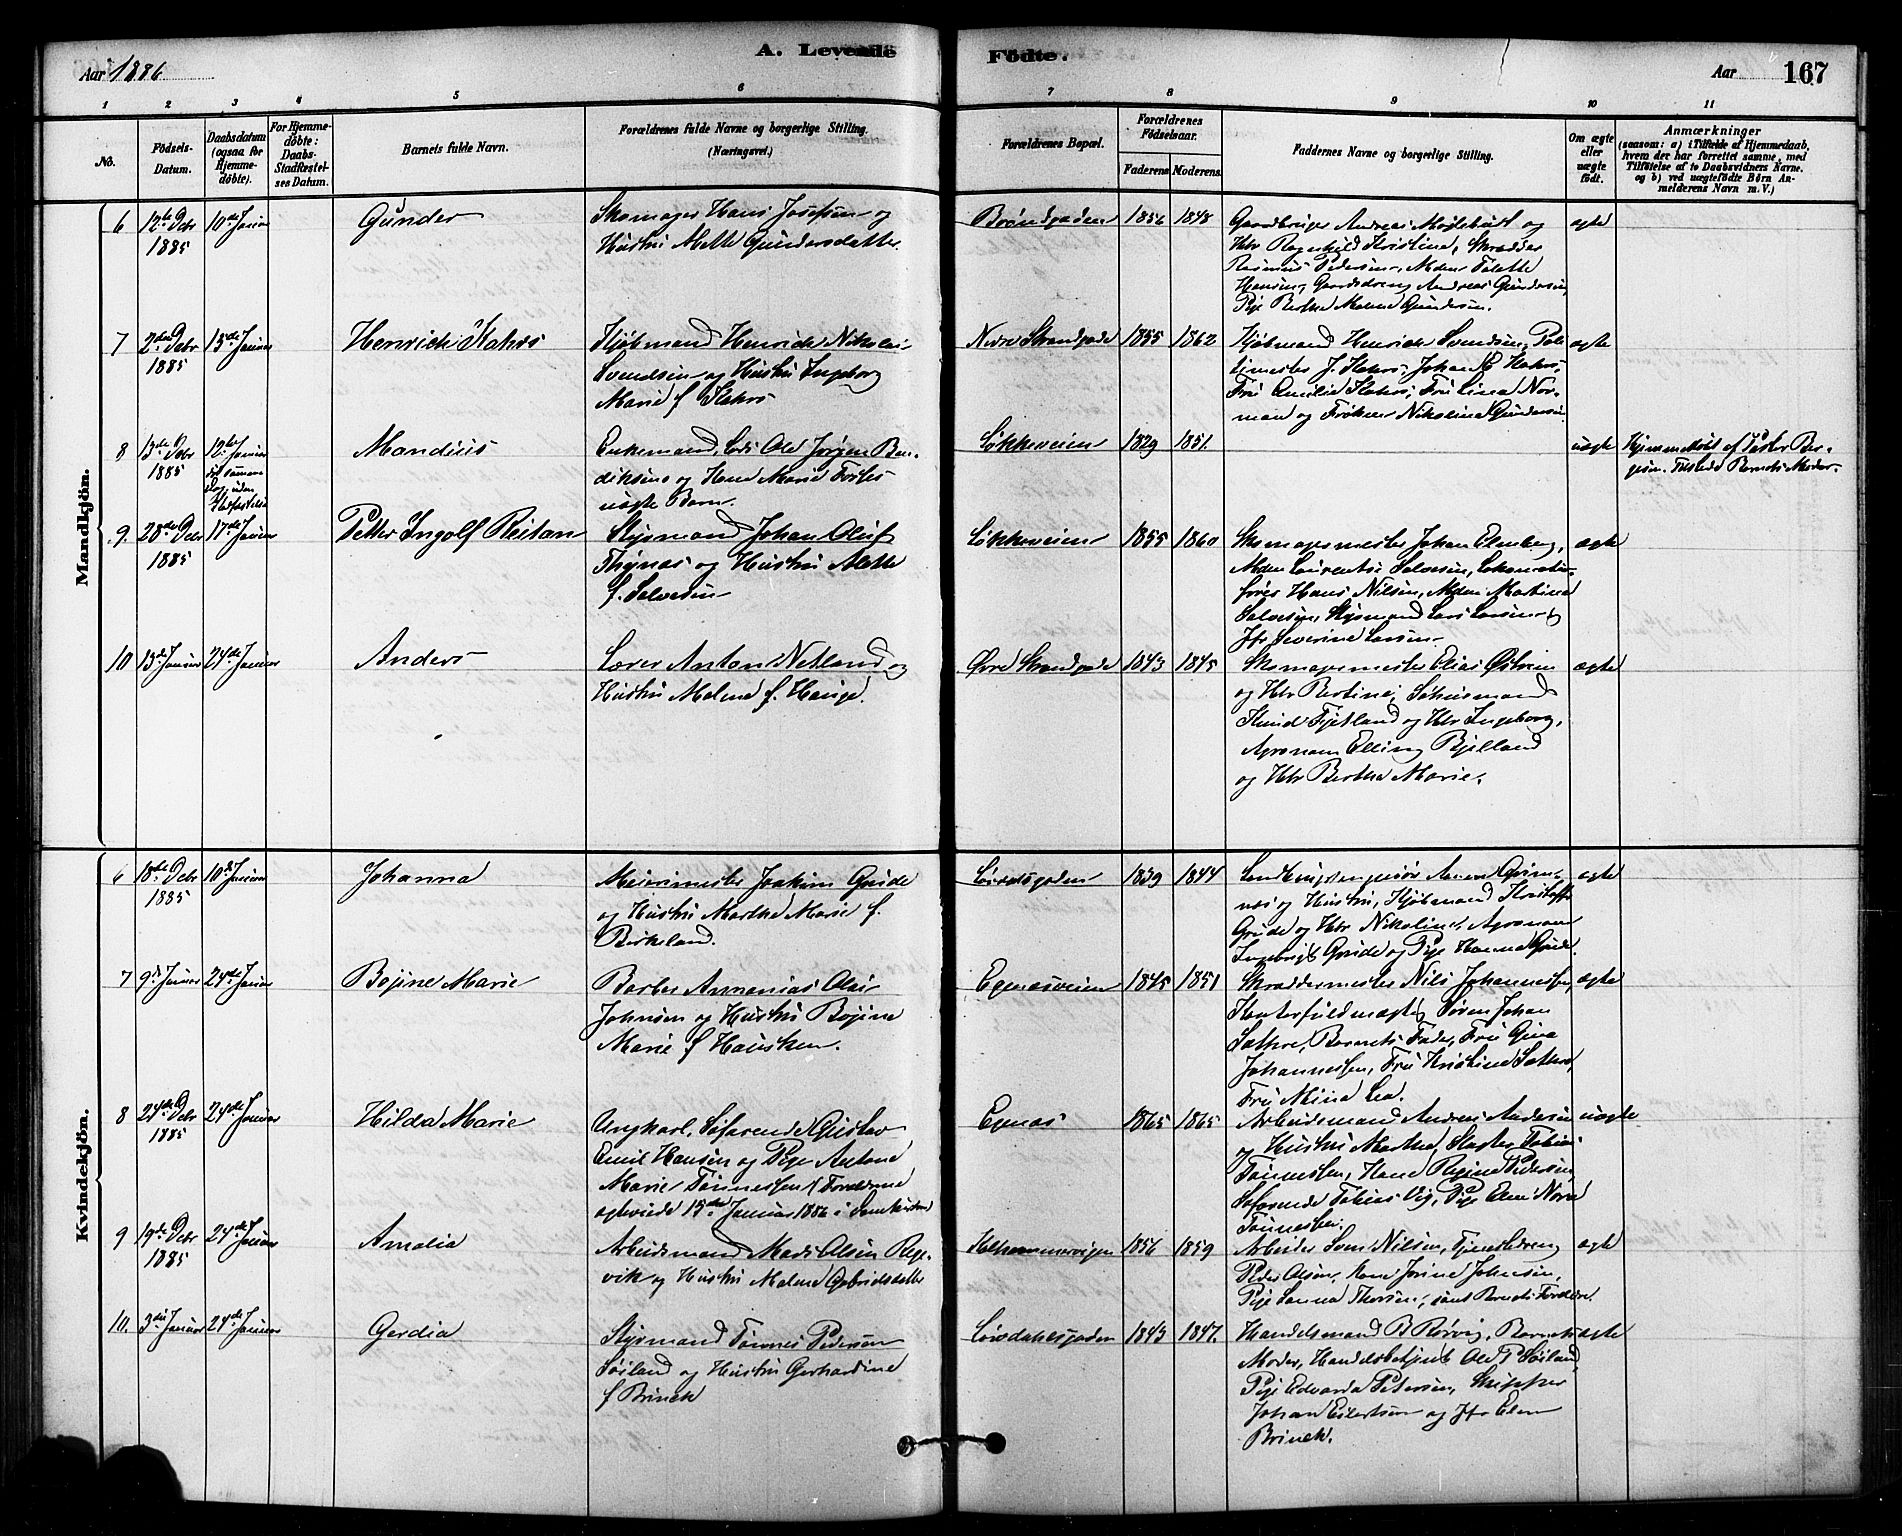 Aar 1886
A. Levende
Födte.
Aar
167
1 2 3 4 5 6 7 8 9 10 11
No.
Födsels-Datum.
Daabsdatum (ogsaa for Hjemmedöbte).
For Hjemmedöbte: Daabs-Stadfæstelses Datum.
Barnets fulde Navn.
Forældrenes fulde Navne og borgerlige Stilling.
(Næringsvei.)
Forældrenes Bopæl.
Forældrenes Födselsaar.
Faderens Moderens
Faddernes Navne og borgerlige Stilling.
Om ægte eller uægte födt.
Anmærkninger
(saasom: a) i Tilfælde af Hjemmedaab, hvem der har forrettet samme, med Tilföielse af to Daabsvidners Navne. og b) ved uægtefödte Börn Anmelderens Navn m. V.)
Mandkjön.
6 12te Debr 1885 10de Januar Gunder
Skomager Hans Josefsen og
Hustru Mette Gundersdatter.
Brøndgaden 1856 1848
Gaardbruger Andreas
og
Hbr Ragnhild Kristine, Skrædder
Rasmus Pedersen,
Tolette
Hansen, Gaardsdreng Andreas Gundersen,
Pige Berthe Malene Gundersen.
ægte
7 2den Debr 1885 13de Januar Henrich Stahrs
Kjøbmand Henrich Nikolai
Svendsen og Hustru Ingeborg
Marie f.
Nedre Strandgade 1855 1862
Kjøbmand Henrich Svendsen, Poli-
timester J.
Johan
Fru Emilie
Fru Lina Nor-
man og Frøken Nikoline Gundersen
ægte
8 13de Debr 1885 12te Januar
Mandius
Enkemand,
Ole Jørgen Ben-
diksens og
Marie
uægte Barn.
Løkkeveien 1829 1851.
uægte
Hjemmedøbt af
Ber-
gesen. Tilstede Barnets Moder.
9. 28de Debr 1885 17de Januar Petter Ingolf Reitan
Styrmand Johan Oluf
Thynæs og Hustru Mette
f. Salvesen
Løkkeveien 1855 1860
Skomagermester Johan Elenberg,
Laurentse Salvesen,
fører Hans Nilsen,
Martine
Salvesen, Styrmand Lars Larsen og
Jfr Severine Larsen.
ægte
10 13de Januar 24de Januar Anders
Lærer Anton Netland og
Hustru Malene f. Hauge.
Øvre Strandgade 1843 1845
Skomagermester Elias
og Hbr Bertine,
Knud Tjetland og Hbr Ingeborg,
Agronom Elling Bjelland
og Hbr Berthe Marie.
ægte
Kvindekjön.
6 18de Debr 1885 10de Januar Johanna
Meierimester Joakim Grude
og Hustru Marthe Marie f.
Birkeland.
1839 1844
og Hustru, Kjøbmand Kristoffer
Grude og Hbr Nikoline, Agronom
Ingebrigt Grude og Pige Hanna Grude
ægte
7 9de Januar 24de Januar Bojine Marie
Barber Annanias Olai
Johnsen og Hustru Bojine
Marie f Hausken.
Egenæsveien 1845 1851
Skræddermester Nils Johannesen,
Søren Johan
Sæthre, Barnets Fader, Fru Gina
Johannessen, Fru Kristine Sæthre,
Fru Mina Lea.
ægte
8 24de Debr 1885 24de Januar Hilda Marie
Ungkarl, Søfarende Gustav
Emil Hansen og Pige Antone
Marie Tønnessen (Forældrene
ægteviede 15de Januar 1886 i Domkirken)
Egenæs 1865 1865
Arbeidsmand Andreas Andersen
og Hustru Marthe,
Tobias
Tønnessen, Kone Regine Pedersen,
Søfarende Tobias Vig, Pige Elen Nora
Tønnessen.
uægte
9 19de Debr 1885 24de Januar Amalia
Arbeidsmand Mads Olsen Rege-
vik og Hustru Malene Gabrielsdatter
Kalhammervigen 1856 1859
Arbeider Sven Nilsen, Tjenestdreng
Peder Olsen, Kone Jorine Johnsen,
Pige Sanna Thorsen, samt Barnets Forældre.
ægte
10. 3die Januar 24de Januar Gerdia
Styrmand Tønnes Pedersen
Søiland og Hustru Gerhardine
f Brinck
Løvdahlsgaden 1843 1847.
Handelsmand B Rørvig, Barnets
Moder, Handelsbetjent Ole P Søiland,
Pige Edvarda Petersen, Skipper
Johan Eilertsen og Jfr Elen
Brinck.
ægte